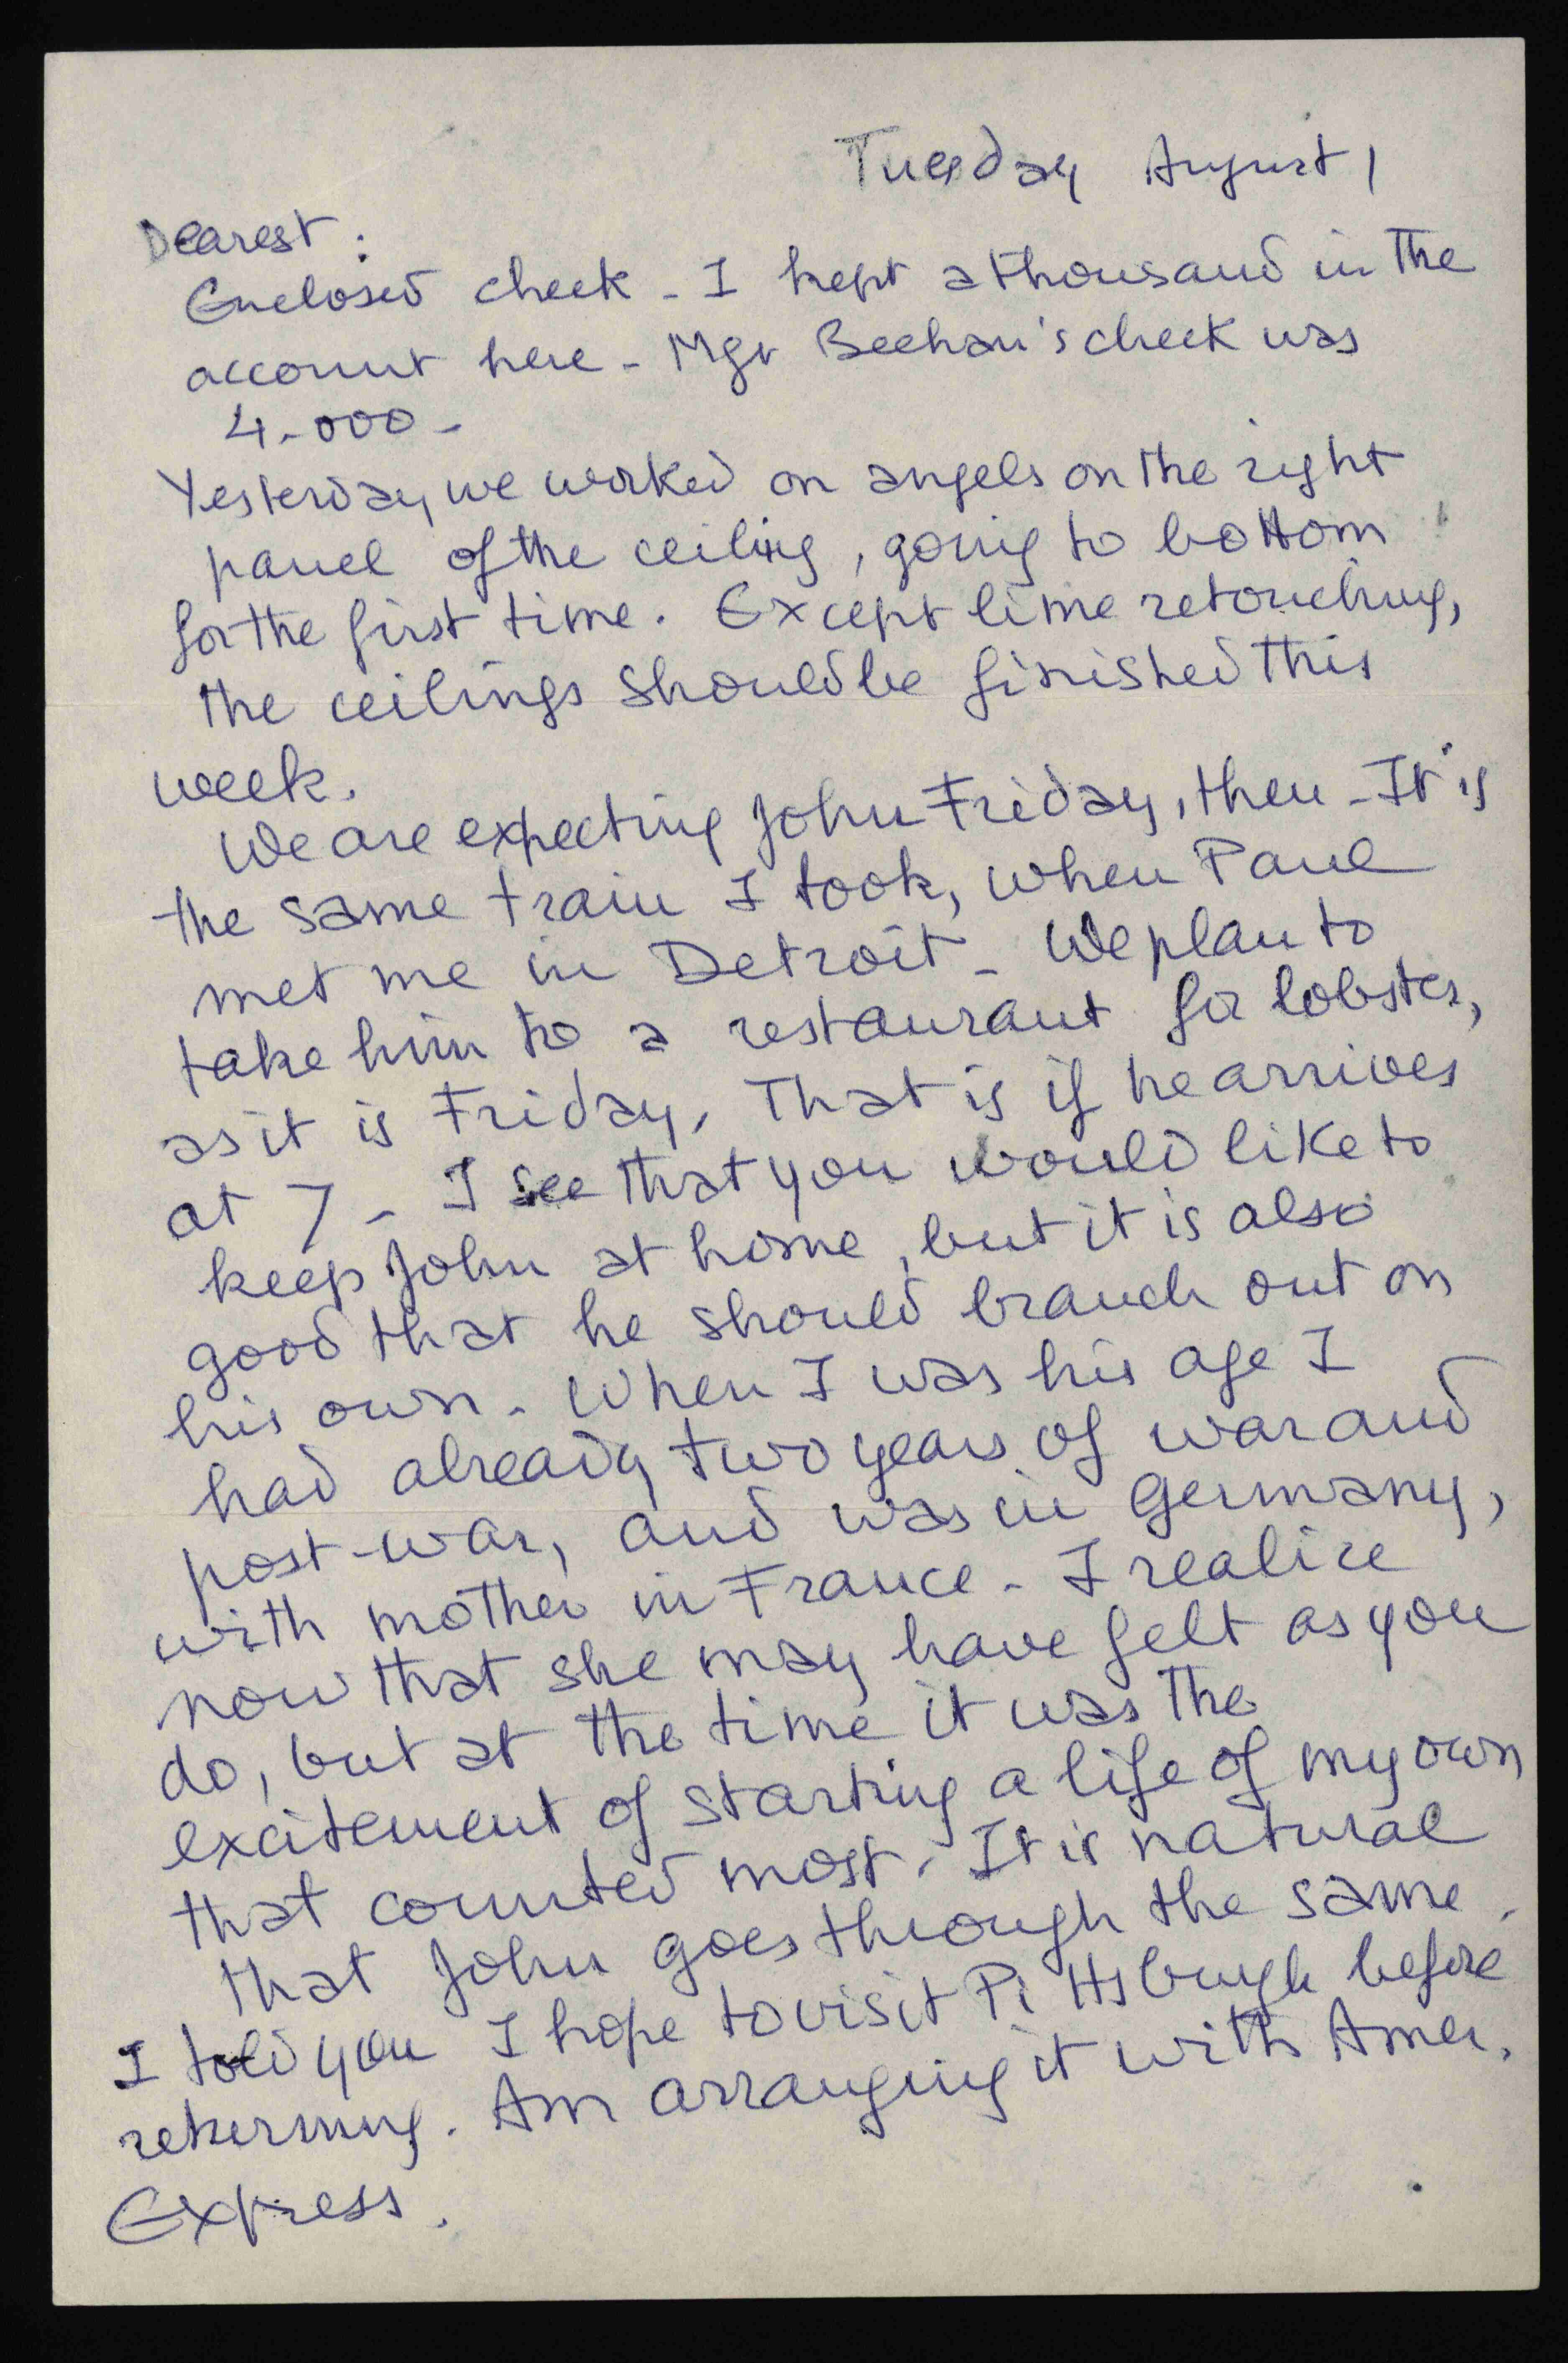 Tuesday August 1
Dearest:
Enclosed check - I kept a thousand in the
account here - Mgr Beehan's check was
4.000 -
Yesterday we worked on angels on the right
panel of the ceiling, going to bottom
for the first time. Except lime retouching,
the ceilings should be finished this
week.
We are expecting John Friday, then - It is
the same train I took, when Paul
met me in Detroit - We plan to
take him to a restaurant for lobster,
as it is Friday. That is if he arrives
at 7 - I see that you would like to
keep John at home, but it is also
good that he should branch out on
his own. When I was his age I
had already two years of war and
post-war, and was in Germany,
with mother in France - I realize
now that she may have felt as you
do, but at the time it was the
excitement of starting a life of my own
that counted most. It is natural
that John goes through the same.
I told you I hope to visit Pittsburgh before
returning. Am arranging it with Amer.
Express.